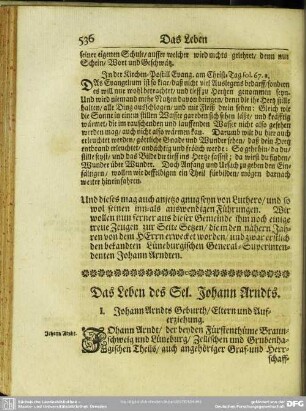 536 Das Leben
seiner eigenen Schule/ ausser welcher wird nichts gelehret/ denn nur
Schein/ Wort und Geschwätz.
In der Kirchen-Postill Evang. am Christ-Tag fol. 67. a.
Das Evangelium ist so klar/ daß nicht viel Auslegens bedarff/ sondern
es will nur wohl betrachtet/ und tieff zu Hertzen genommen seyn.
Und wird niemand mehr Nutzen davon bringen/ denn die ihr Hertz stille
halten/ alle Ding ausschlagen/ und mit Fleiß drein sehen: Gleich wie
die Sonne in einem stillen Wasser gar eben sich sehen läßt/ und kräfftig
wärmet/ die im rauschenden und lauffenden Wasser nicht also gesehen
werden mag/ auch nicht also wärmen kan. Darum wilt du hier auch
erleuchtet werden/ göttliche Gnade und Wunder sehen/ daß dein Hertz
entbrandt/ erleuchtet/ andächtig und frölich werde/ So gehe hin/ da du
stille seyst/ und das Bilde dir tieff ins Hertz fassest/ da wirst du finden
Wunder über Wunder. Doch Anfang und Ursach zu geben den Ein-
fältigen/ wollen wir desselbigen ein Theil fürbilden/ mögen darnach
weiter hinein fahren.
Und dieses mag auch anjetzo gnug seyn von Luthero/ und so
wol seinen in- als auswendigen Führungen. Wir
wollen nun ferner aus dieser Gemeinde ihm noch einige
treue Zeugen zur Seite setzen/ die in den nähern Jah-
ren von dem HErrn erwecket worden/ und zwar erstlich
den bekandten Lüneburgischen General-Superinten-
denten Johann Arndten.
Das Leben des Sel. Johann Arndts.
I. Johann Arndts Geburth/ Eltern und Auf-
erziehung.
Johann Arndt.
JOhann Arndt/ der beyden Fürstenthüme Braun-
schweig und Lüneburg/ Zellischen und Grubenha-
gischen Theils/ auch angehöriger Graf- und Herr-
schaff-